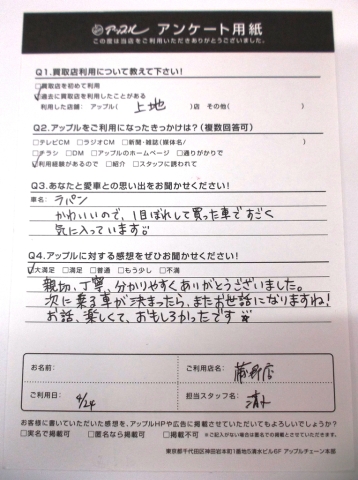 アップル アンケート用紙
この度は当店をご利用いただきありがとうございました。
Q1.買取店利用について教えて下さい!
□買取店を初めて利用
☑過去に買取店を利用したことがある
利用した店舗: アップル( 上地 )店 その他( )
Q2.アップルをご利用になったきっかけは?(複数回答可)
□テレビCM □ラジオCM □新聞・雑誌(媒体名/ )
□チラシ □DM □アップルのホームページ □通りがかりで
☑利用経験があるので □紹介 □スタッフに誘われて
Q3.あなたと愛車との思い出をお聞かせください!
車名: ラパン
かわいいので、1目ぼれして買った車ですごく
気に入っています。
Q4.アップルに対する感想をぜひお聞かせください!
☑大満足 □満足 □普通 □もう少し □不満
親切、丁寧、分かりやすくありがとうございました。
次に乗る車が決まったら、またお世話になりますね!
お話、楽しくて、おもしろかったです
お名前: ご利用店名:
ご利用日: 4/24 担当スタッフ名: 清水
お客様に書いていただいた感想を、アップルHPや広告に掲載させていただいてもよろしいでしょうか?
□実名で掲載可 □匿名なら掲載可 □掲載不可 ※ご記入がない場合は匿名での掲載とさせていただきます。
東京都千代田区神田岩本町1番地5清水ビル6F アップルチェーン本部